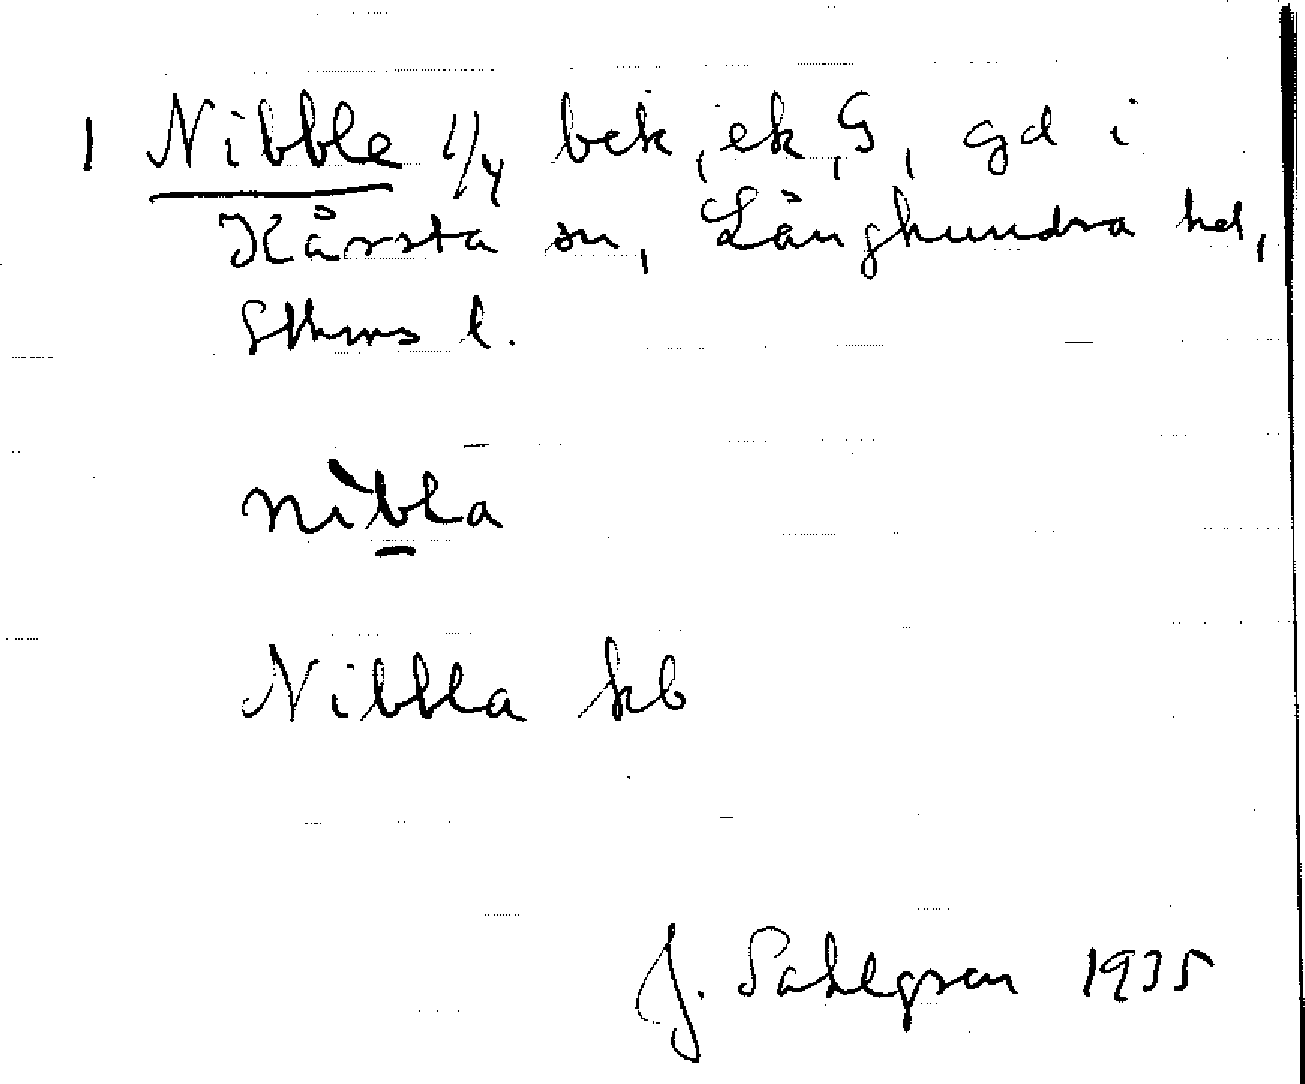 1 Nibble 1/4 bek, ek, G, gd i
Kårsta sn, Långhundra hd,
Sthms l.
nìbla
Nibbla kb
J. Sahlgren 1935